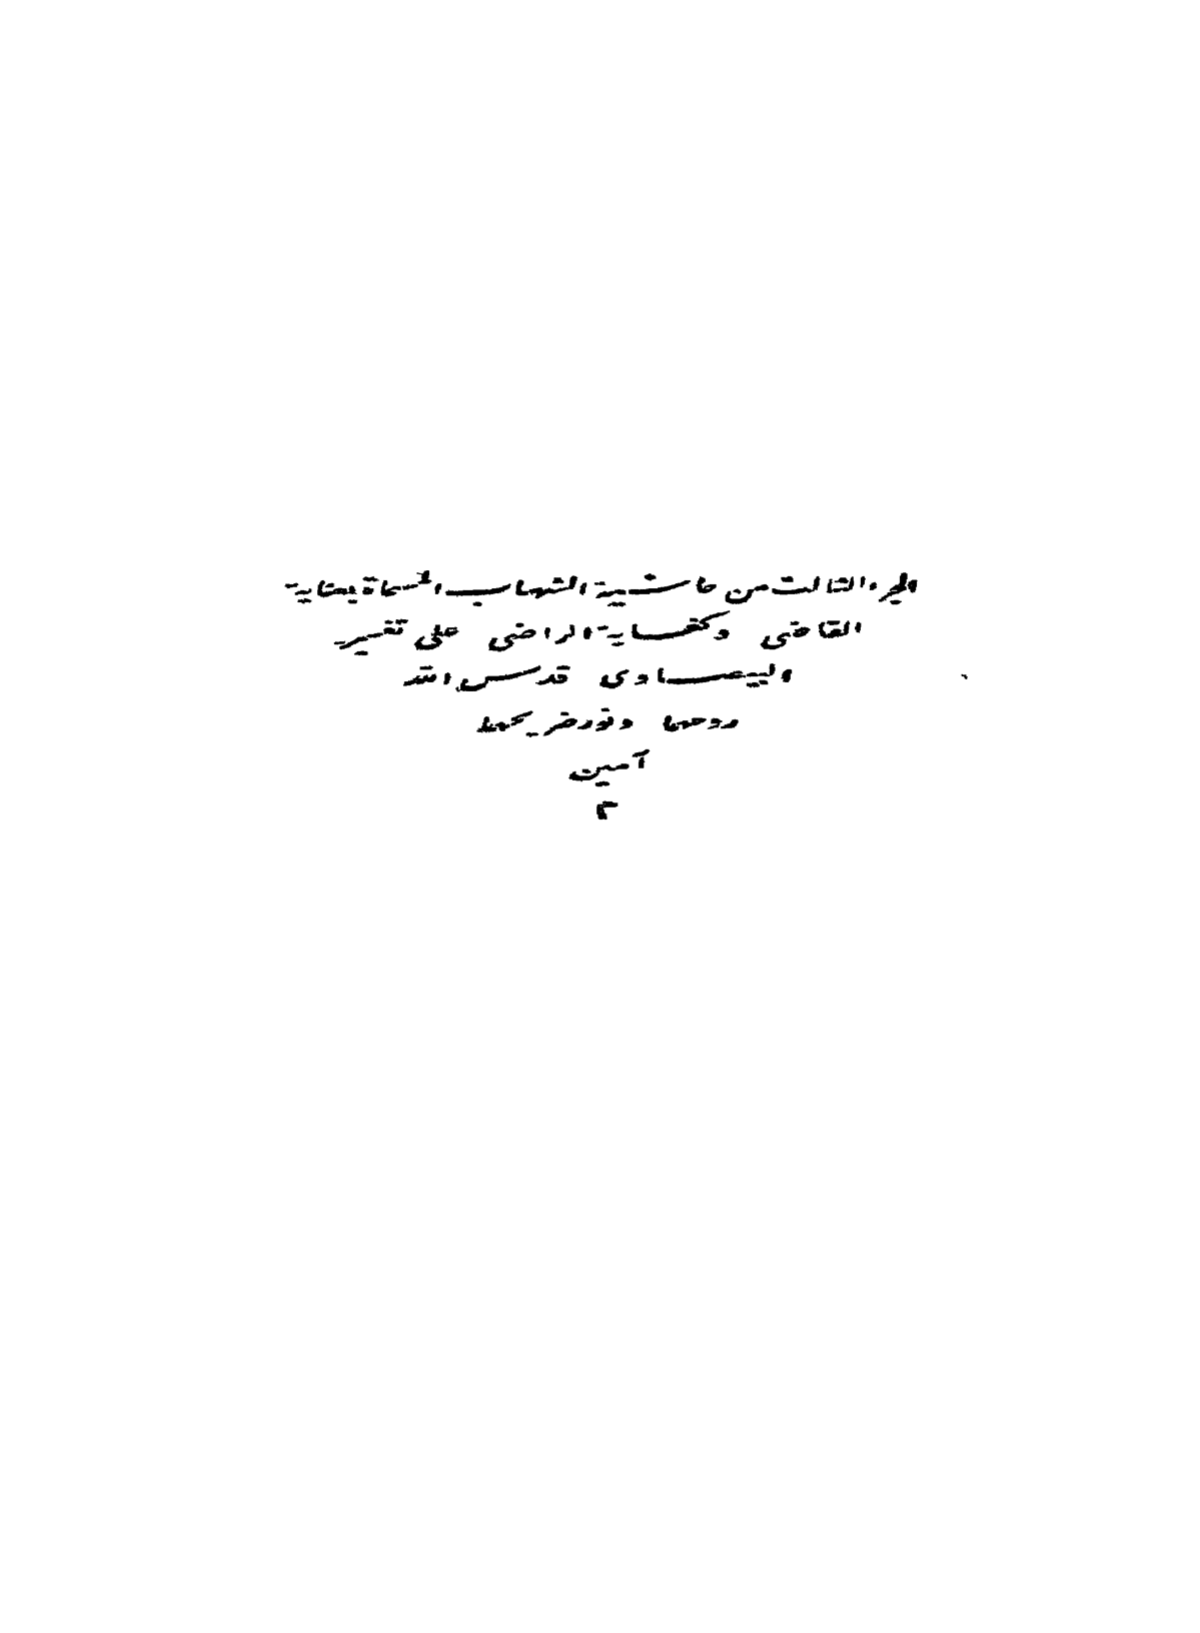 الجزء الثالث من حاشية الشهاب المسماة بعناية
القاضى وكفاية الراضى على تفسير
البيضاوى قدس الله
روحهما ونور ضريحهما
آمين
م